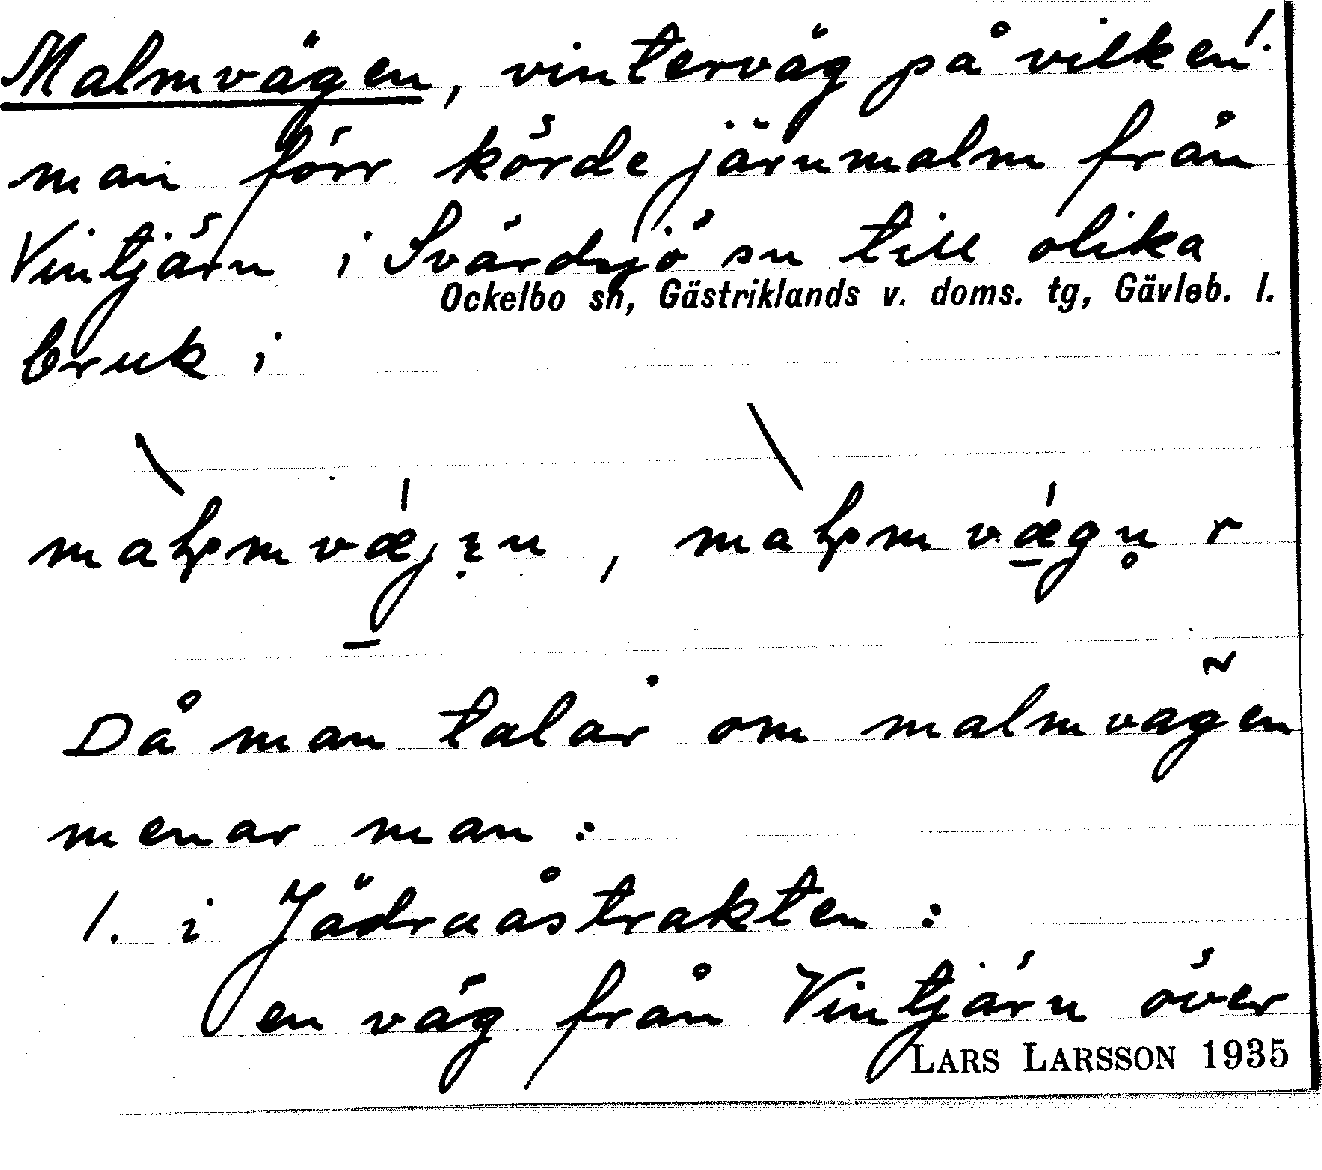 Malmvägen, vinterväg på vilken 1.
man förr körde järnmalm från
Vintjärn i Svärdsjö sn till olika
Ockelbo sn, Gästriklands v. doms. tg, Gävleb. l.
bruk i
Då man talar om malmvägen
menar man:
1. i Jädraåstrakten:
en väg från Vintjärn över
LARS LARSSON 1935